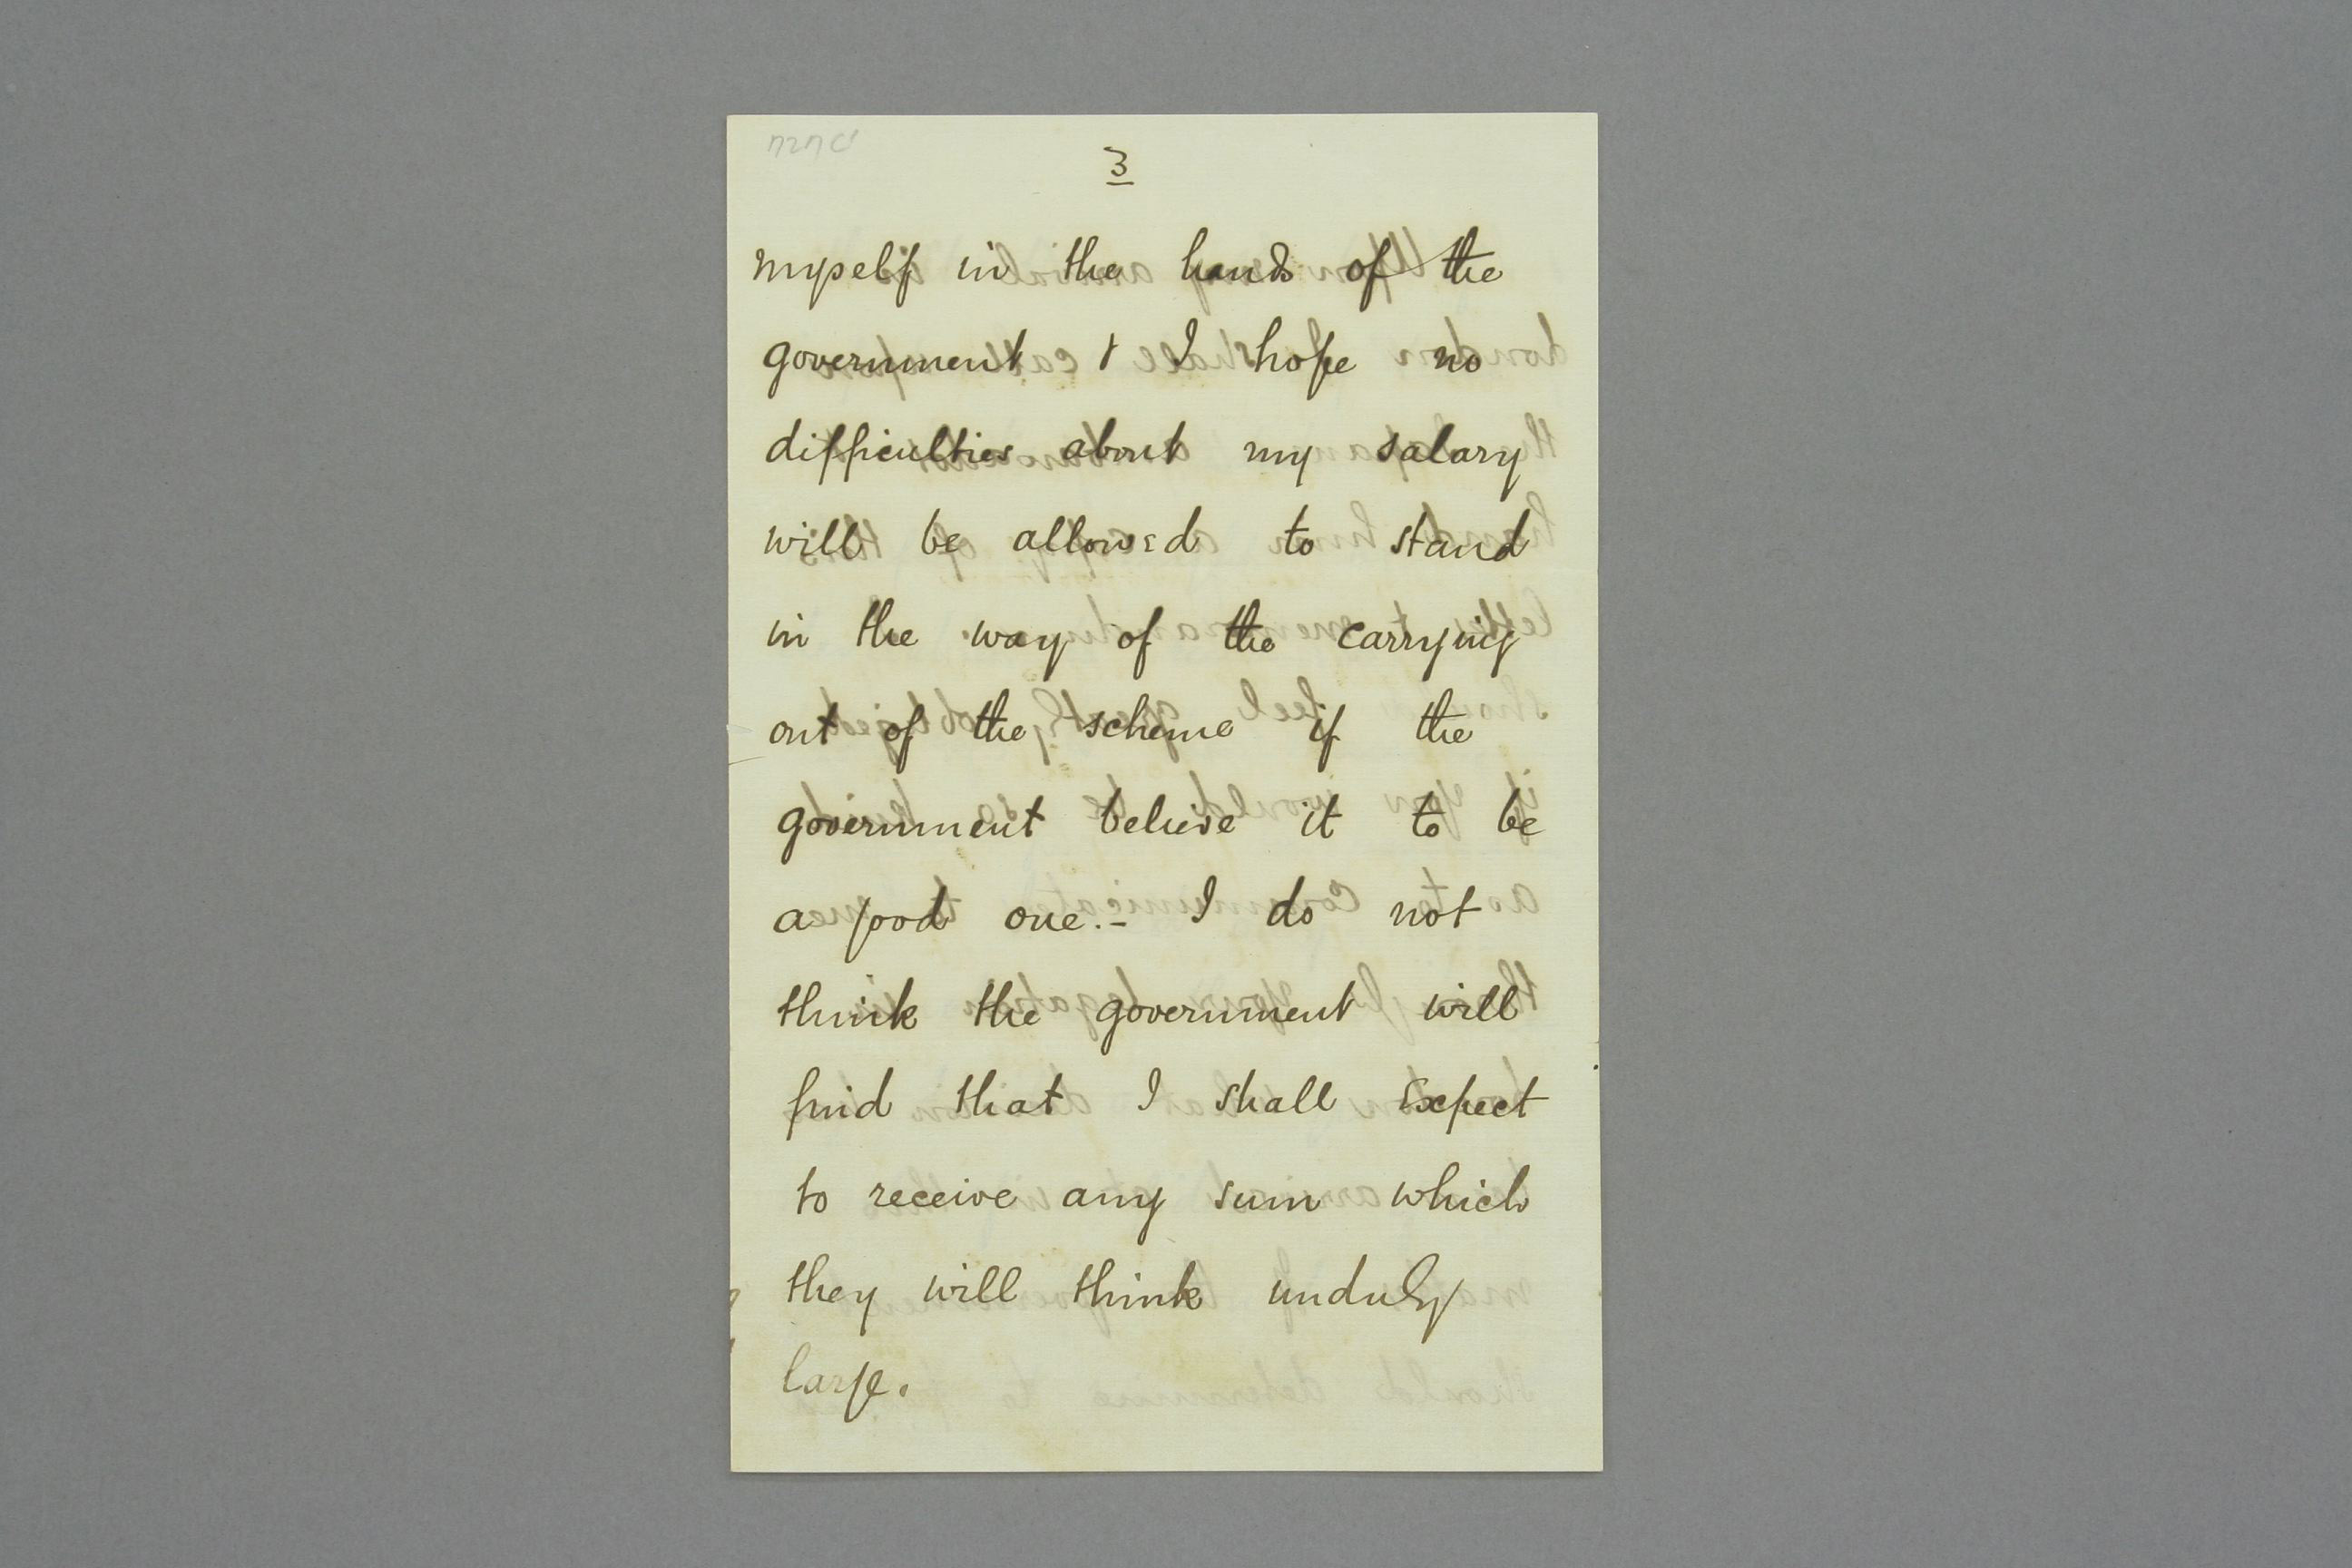 3
myself in the hands of the
government & I hope no
difficulties about my salary
will be allowed to stand
in the way of the carrying
out of the scheme if the
government believe it to be
a good one. – I do not
think the government will
find that I shall expect
to receive any sum which
they will think unduly
large.